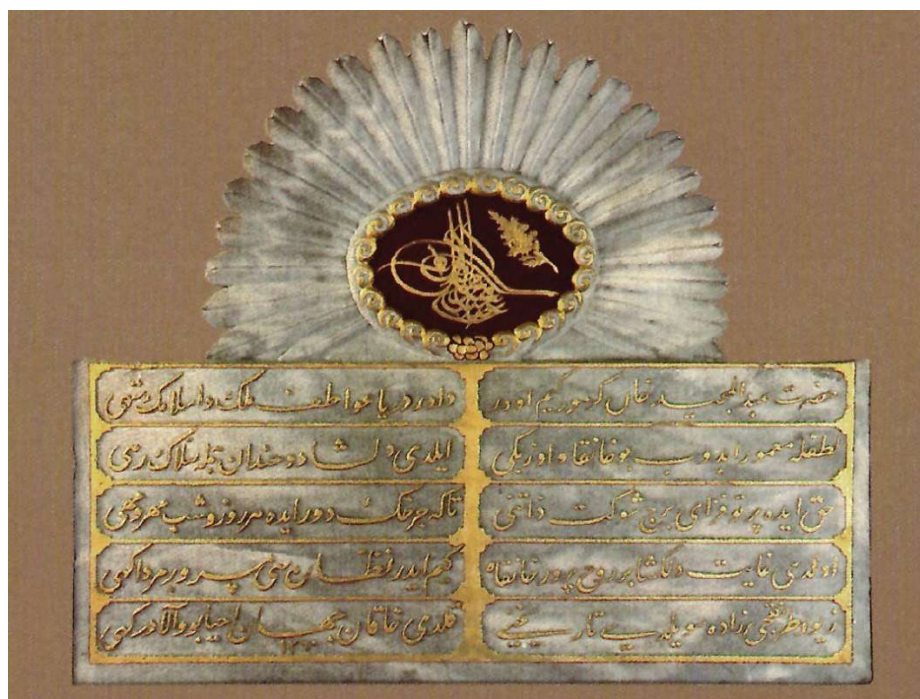 حضرت عبدالمجید خان کرمور کیم اودر داور دریا عواطف ملک و اسلامک شهی
لطفله معمور ایدوب بو خانقاه اوزبکی ایلدی دلشاد و خندان جمله سلاک رهی
حق ایده پرتو فزای برج شوکت ذاتنی تاکه چرخک دور ایده هر روز و شب مهر و مهی
اولدی غایت دلکشا بر روح پرور خانقاه کیم ایدر مسرور آکهی
زیور زاده سویلدی تاریخنی قلدی خاقان جهان احیا بو والا درکهی